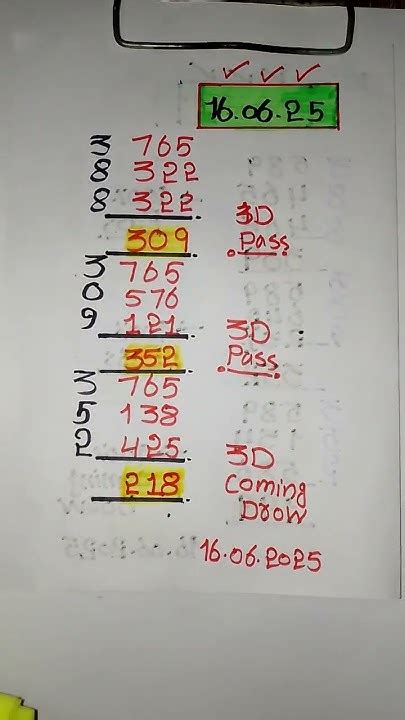 16.06.25
3 765
8 322
8 322
309
3D
Pass
3 765
0 576
9 121
352
3D
Pass
3 765
5 138
2 425
218
3D
Coming
Drow
16.06.2025